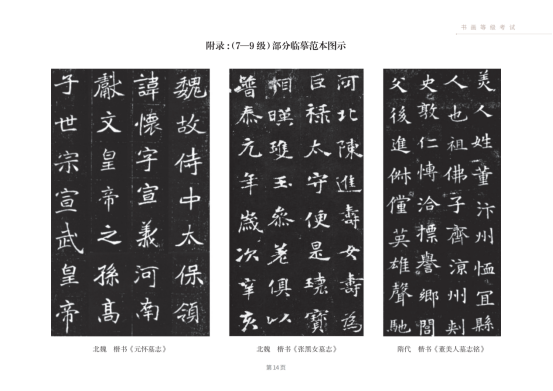 书画等级考试
附录:(7—9 级)部分临摹范本图示
魏故侍中太保領
諱懷字宣義河南
獻文皇帝之孫高
子世宗宣武皇帝
北魏 楷书《元怀墓志》
河北陳進壽女壽為
巨祿太守便是瓌寶
相暎瓊玉參差俱以
普泰元年歲次辛亥
北魏 楷书《张黑女墓志》
美人姓董汴州恤宜縣
人也祖佛子齊涼州刺
史敦仁博洽標譽鄉閭
父後進俶儻英雄聲馳
隋代 楷书《董美人墓志铭》
第 14 页